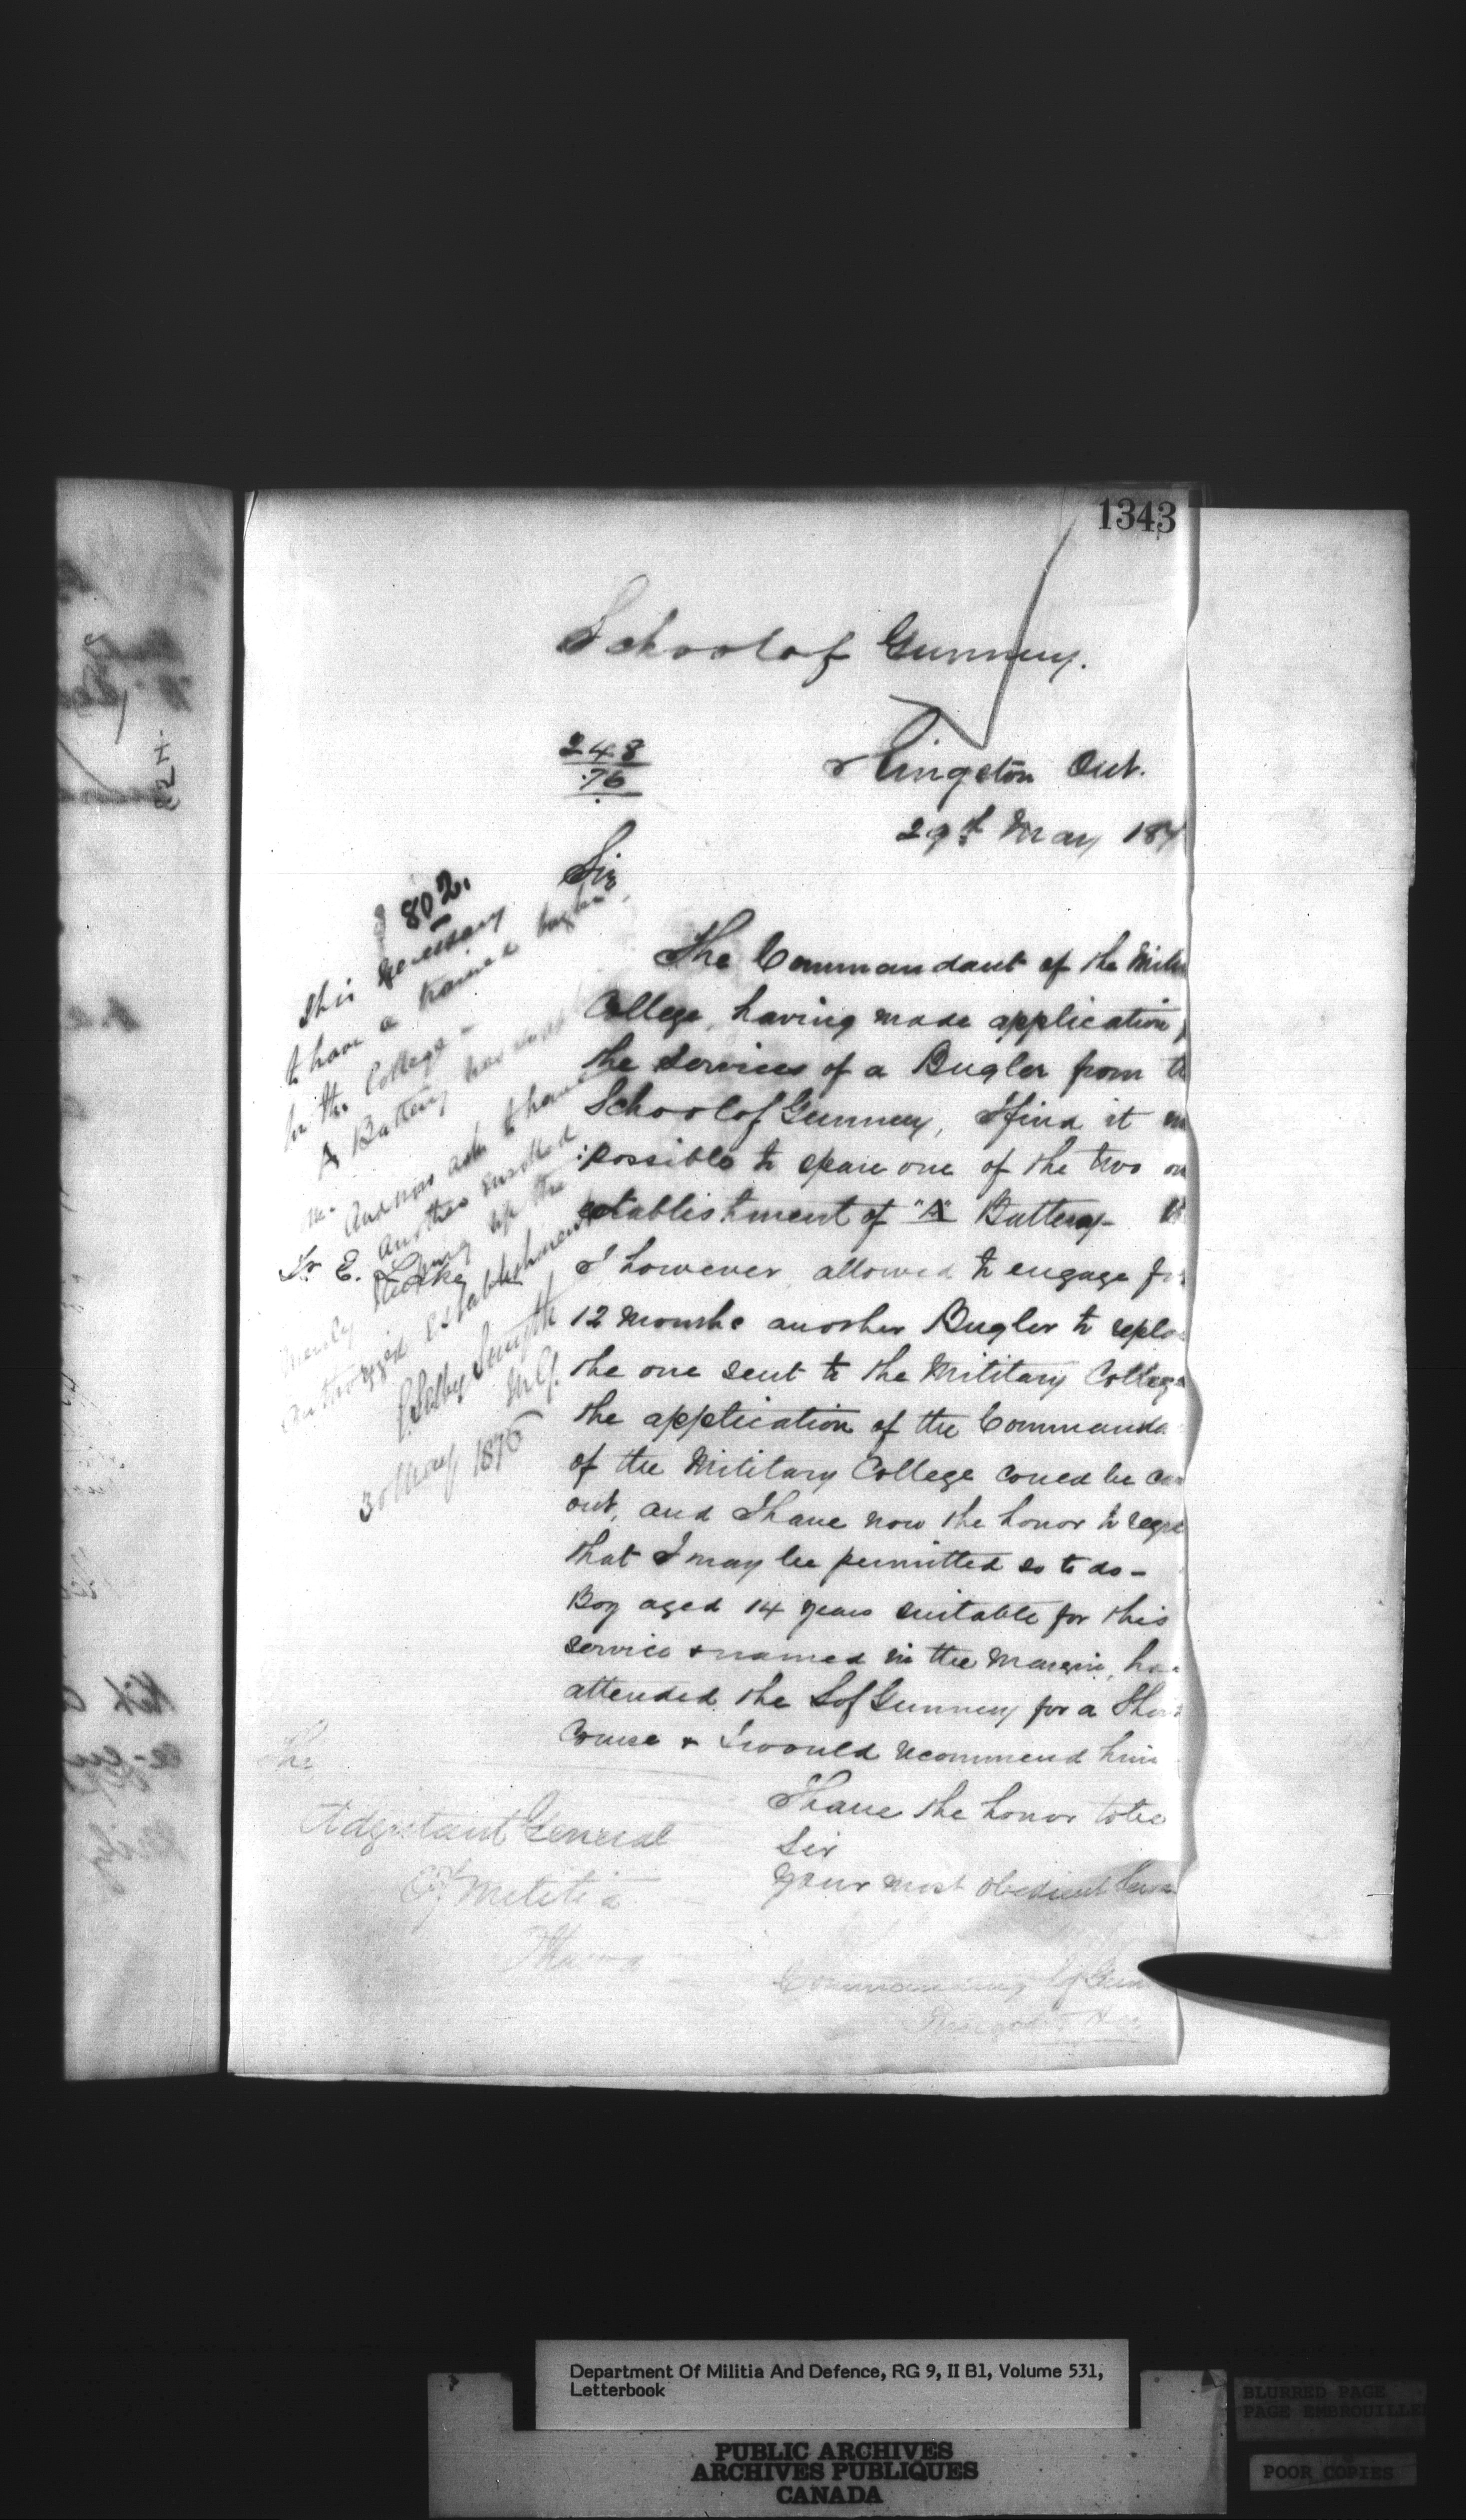 1343
School of Gunnery.
248
76
Kingston Ont.
29th May 187
Sir
The Commandant of the Milit
College, having made application
the services of a Bugler from th
School of Gunnery, I find it im
:possible to spare one of the two on
establishment of "A" Battery-
I however allowed to engage for
12 Months another Bugler to repla
the one sent to the Military College
the application of the Commanda
of the Military College could be car
out, and I have now the honor to reque
that I may be permitted so to do-
Boy aged 14 years suitable for this
service & named in the Margin, has
attended the S of Gunnery for a Short
Course & I would recommend him
I have the honor to be
Sir
Your most obedient Serva
Commanding S of Gun
802.
This necessary
to have a trained bugler
for the College -
A Battery has
And now asks to have
another enrolled
Tr E. Lake
merely up the
authorized Establishment
E. Selby Smyth
M.G.
30 May 1876
The
Adjutant General
Of Militia
Ottawa
Department Of Militia And Defence, RG 9, II B1, Volume 531,
Letterbook
PUBLIC ARCHIVES
ARCHIVES PUBLIQUES
CANADA
BLURRED PAGE
PAGE EMBROUILLE
POOR COPIES